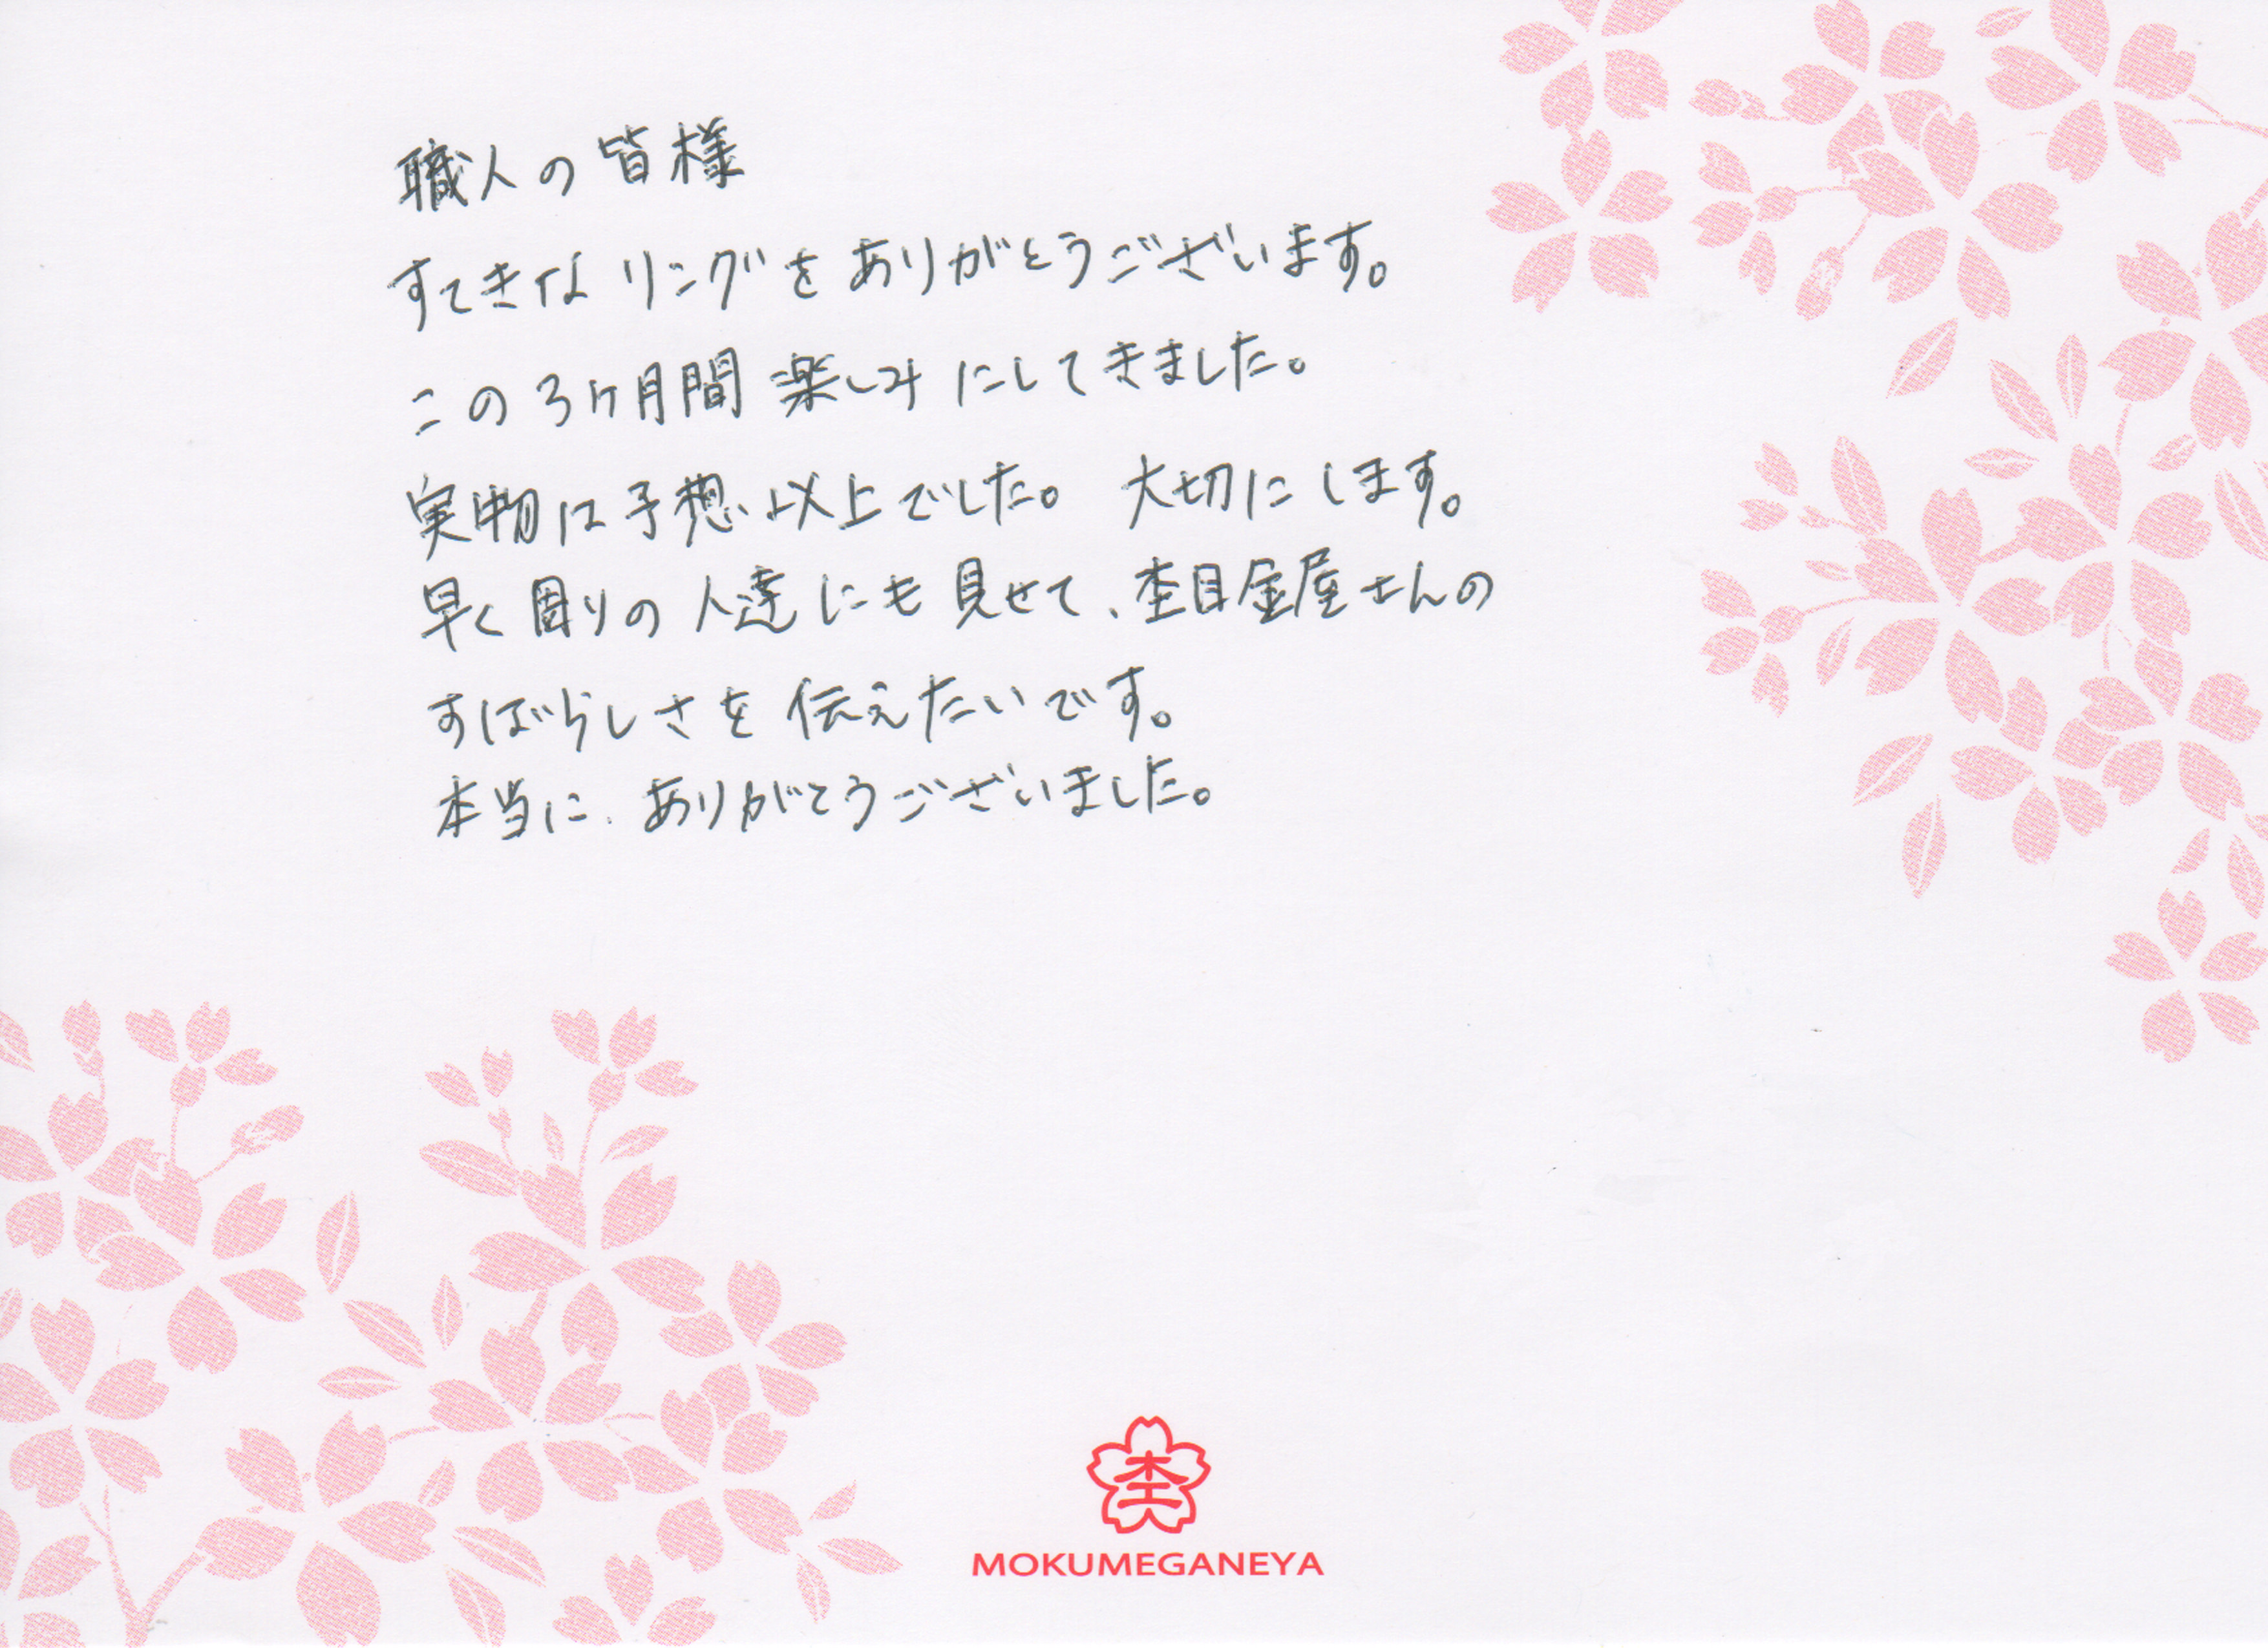 職人の皆様
すてきなリングをありがとうございます。
この3ヶ月間楽しみにしてきました。
実物は予想以上でした。 大切にします。
早く周りの人達にも見せて、杢目金屋さんの
すばらしさを伝えたいです。
本当に、ありがとうございました。
杢
MOKUMEGANEYA